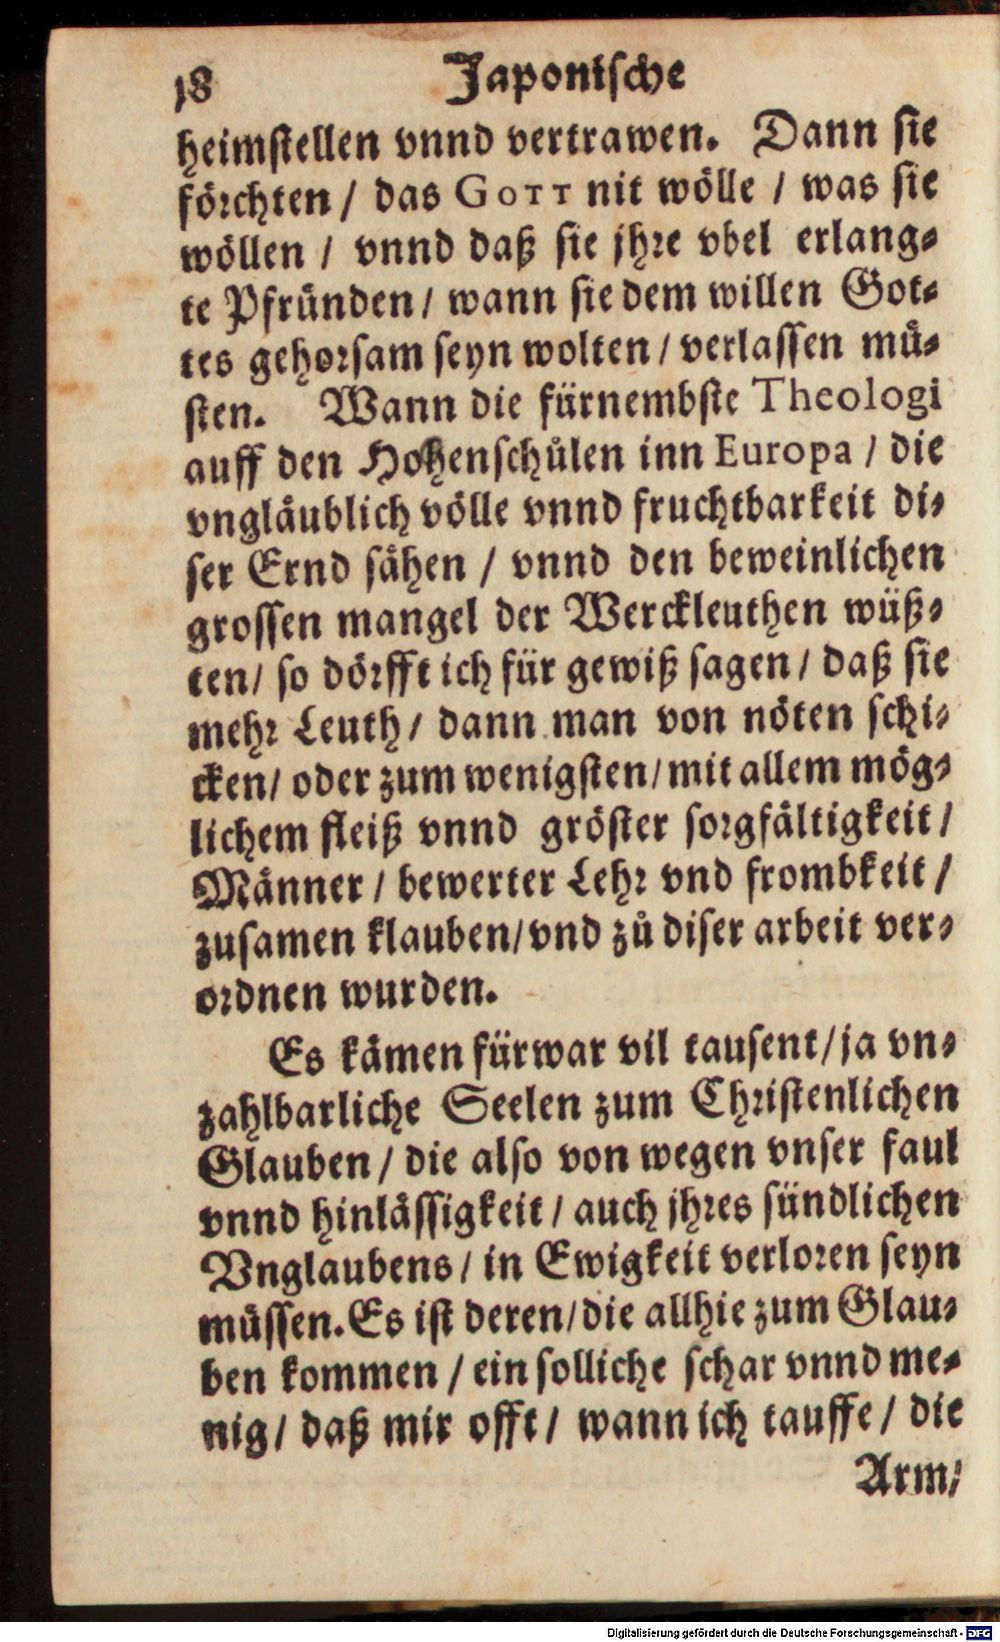 18 Japonische
heimstellen vnnd vertrawen. Dann sie
förchten / das GOTT nit wölle / was sie
wöllen / vnnd daß sie jhre vbel erlang-
te Pfründen / wann sie dem willen Got-
tes gehorsam seyn wolten / verlassen mü-
sten. Wann die fürnembste Theologi
auff den Hohenschůlen inn Europa / die
vngläublich völle vnnd fruchtbarkeit di-
ser Ernd sähen / vnnd den beweinlichen
grossen mangel der Werckleuthen wüß-
ten / so dörfft ich für gewiß sagen / daß sie
mehr Leuth / dann man von nöten schi-
cken / oder zum wenigsten / mit allem mög-
lichem fleiß vnnd gröster sorgfältigkeit /
Männer / bewerter Lehr vnd frombkeit /
zusamen klauben / vnd zů diser arbeit ver-
ordnen wurden.
Es kämen fürwar vil tausent / ja vn-
zahlbarliche Seelen zum Christenlichen
Glauben / die also von wegen vnser faul
vnnd hinlässigkeit / auch jhres sündlichen
Vnglaubens / in Ewigkeit verloren seyn
müssen. Es ist deren / die allhie zum Glau-
ben kommen / ein solliche schar vnnd me-
nig / daß mir offt / wann ich tauffe / die
Arm-
Digitalisierung gefördert durch die Deutsche Forschungsgemeinschaft - DFG